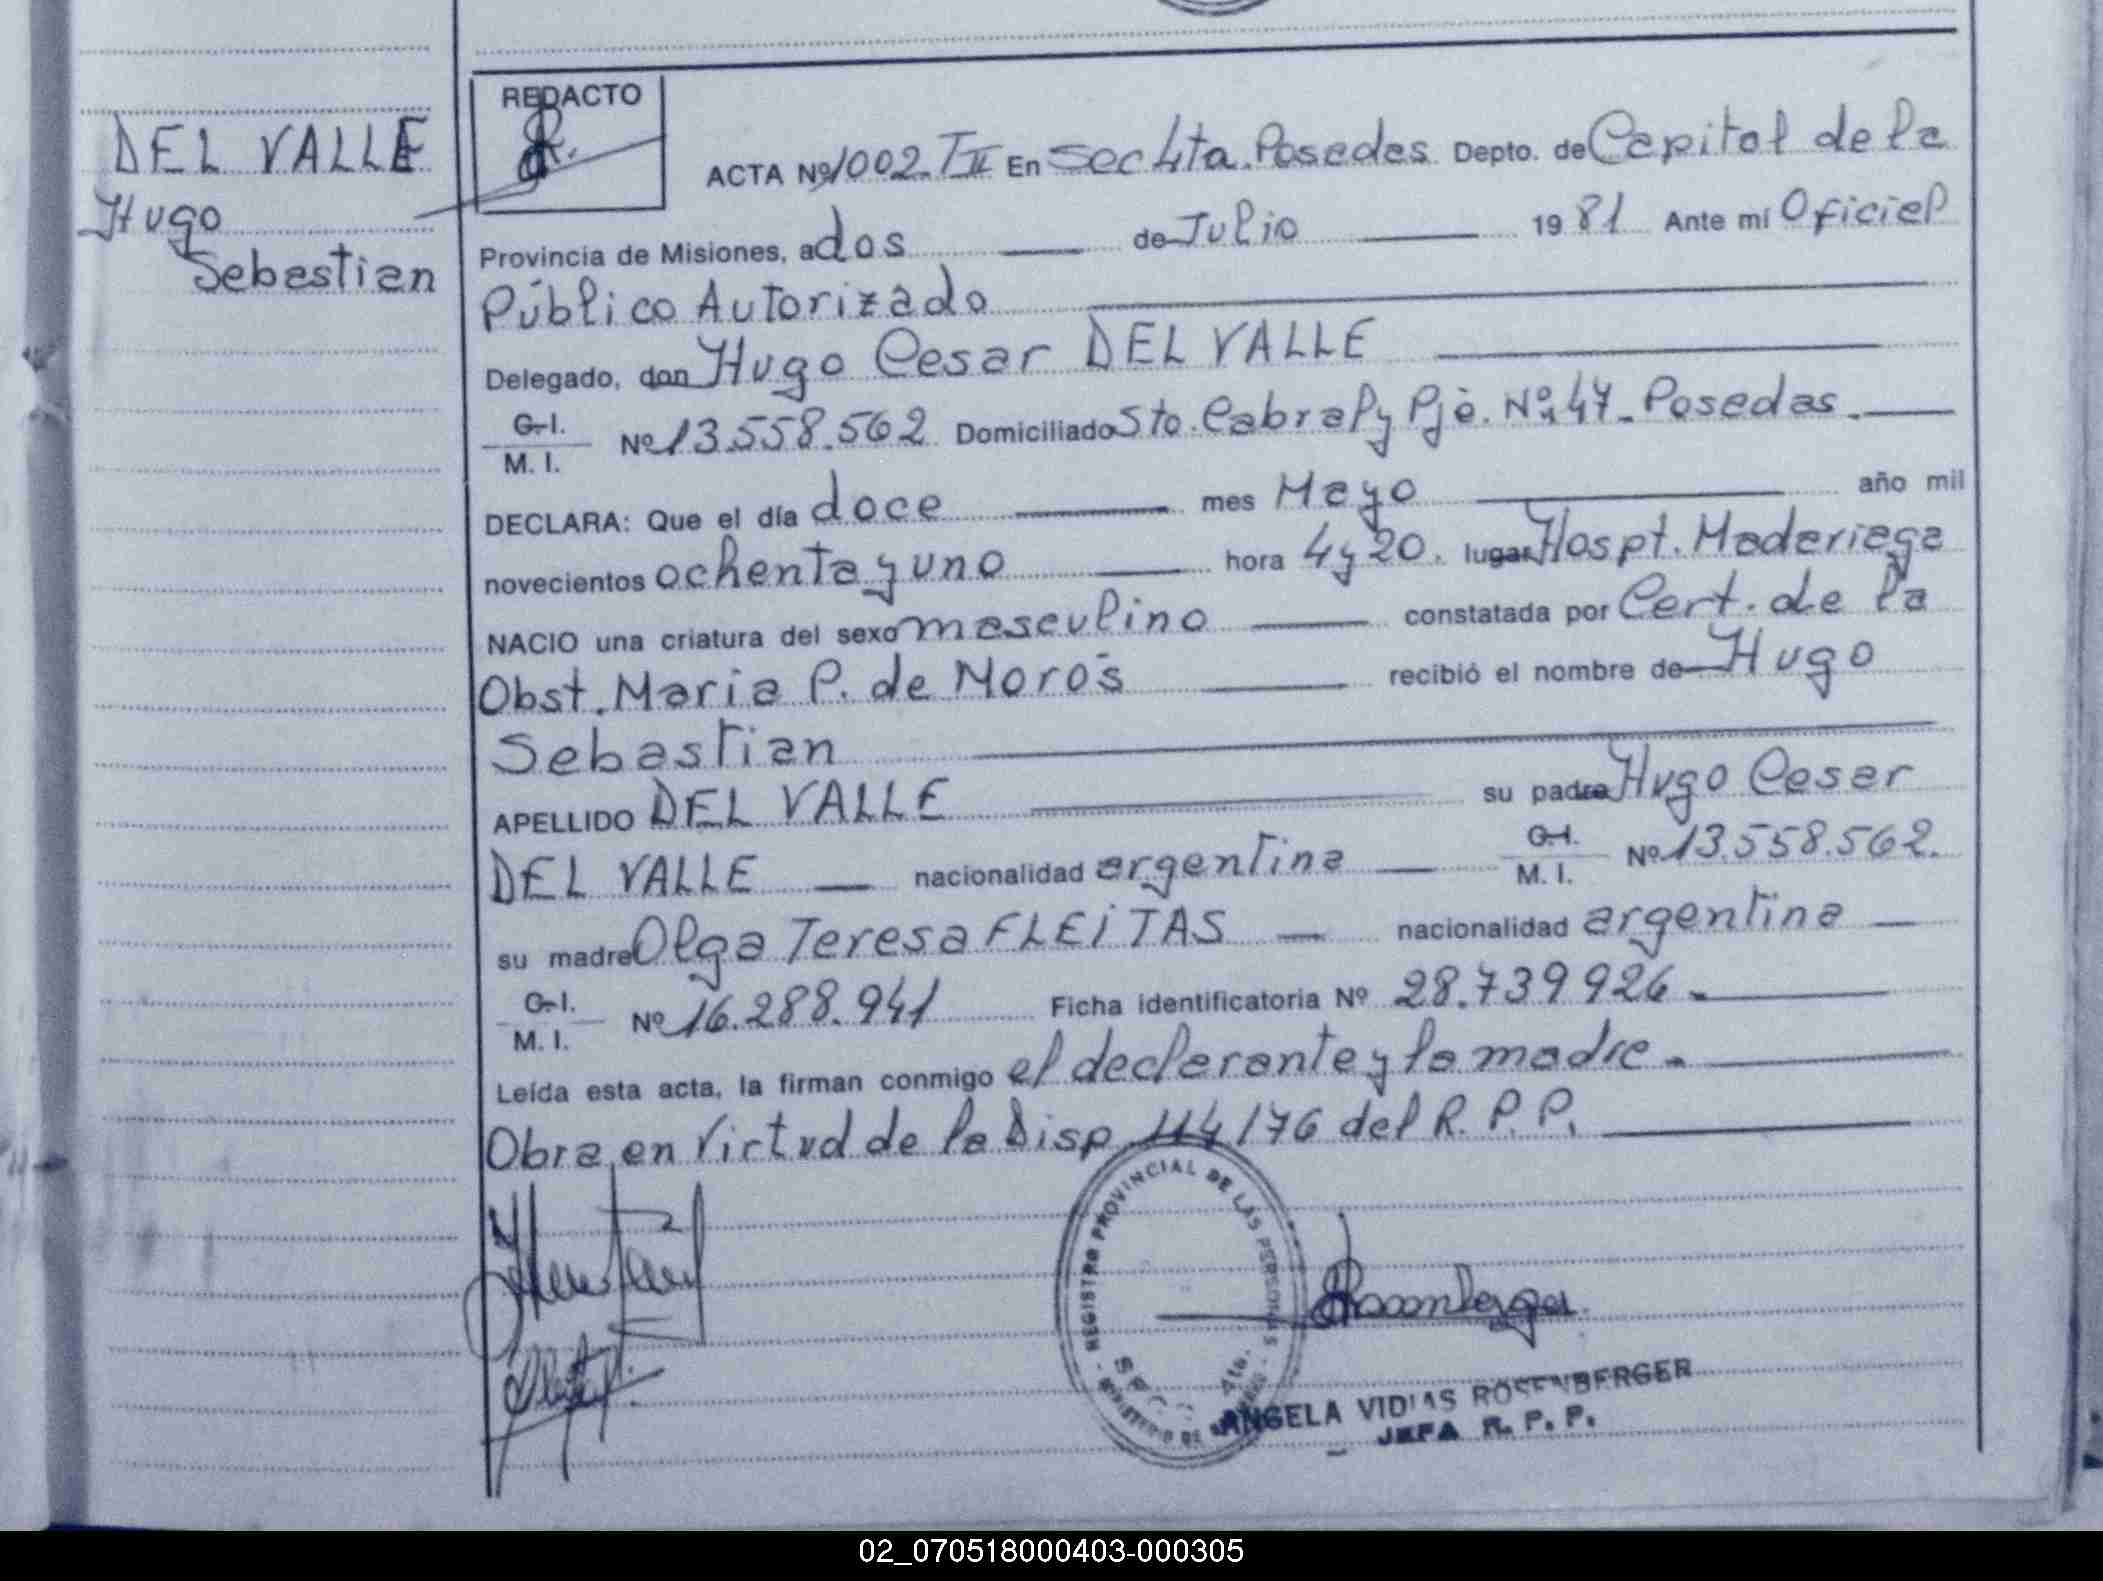 DEL VALLE
Hugo
Sebastian
REDACTO
ACTA Nº 1002. T II En Sec 4ta. Posadas Depto. de Capital de la
Provincia de Misiones, a dos de Julio 19 81 Ante mí Oficial
Público Autorizado
Delegado, don Hugo Cesar DEL VALLE
C.I.
M. I.
Nº 13.558.562 Domiciliado Sto. Cabral y Pje. Nº 47 - Posadas.
DECLARA: Que el día doce mes Mayo año mil
novecientos ochenta y uno hora 4 y 20. lugar Hospt. Madariaga
NACIO una criatura del sexo masculino constatada por Cert. de la
Obst. Maria P. de Moros recibió el nombre de Hugo
Sebastian
APELLIDO DEL VALLE su padre Hugo Cesar
DEL VALLE nacionalidad argentina C.I.
M. I.
Nº 13.558.562.
su madre Olga Teresa FLEITAS nacionalidad argentina
C.I.
M. I.
Nº 16.288.941 Ficha identificatoria Nº 28.739926.
Leída esta acta, la firman conmigo el declarante y la madre.
Obra en Virtud de la Disp 114/76 del R. P. P.
REGISTRO PROVINCIAL DE LAS PERSONAS
4ta.
ANGELA VIDIAS ROSENBERGER
JEFA R. P. P.
02_070518000403-000305